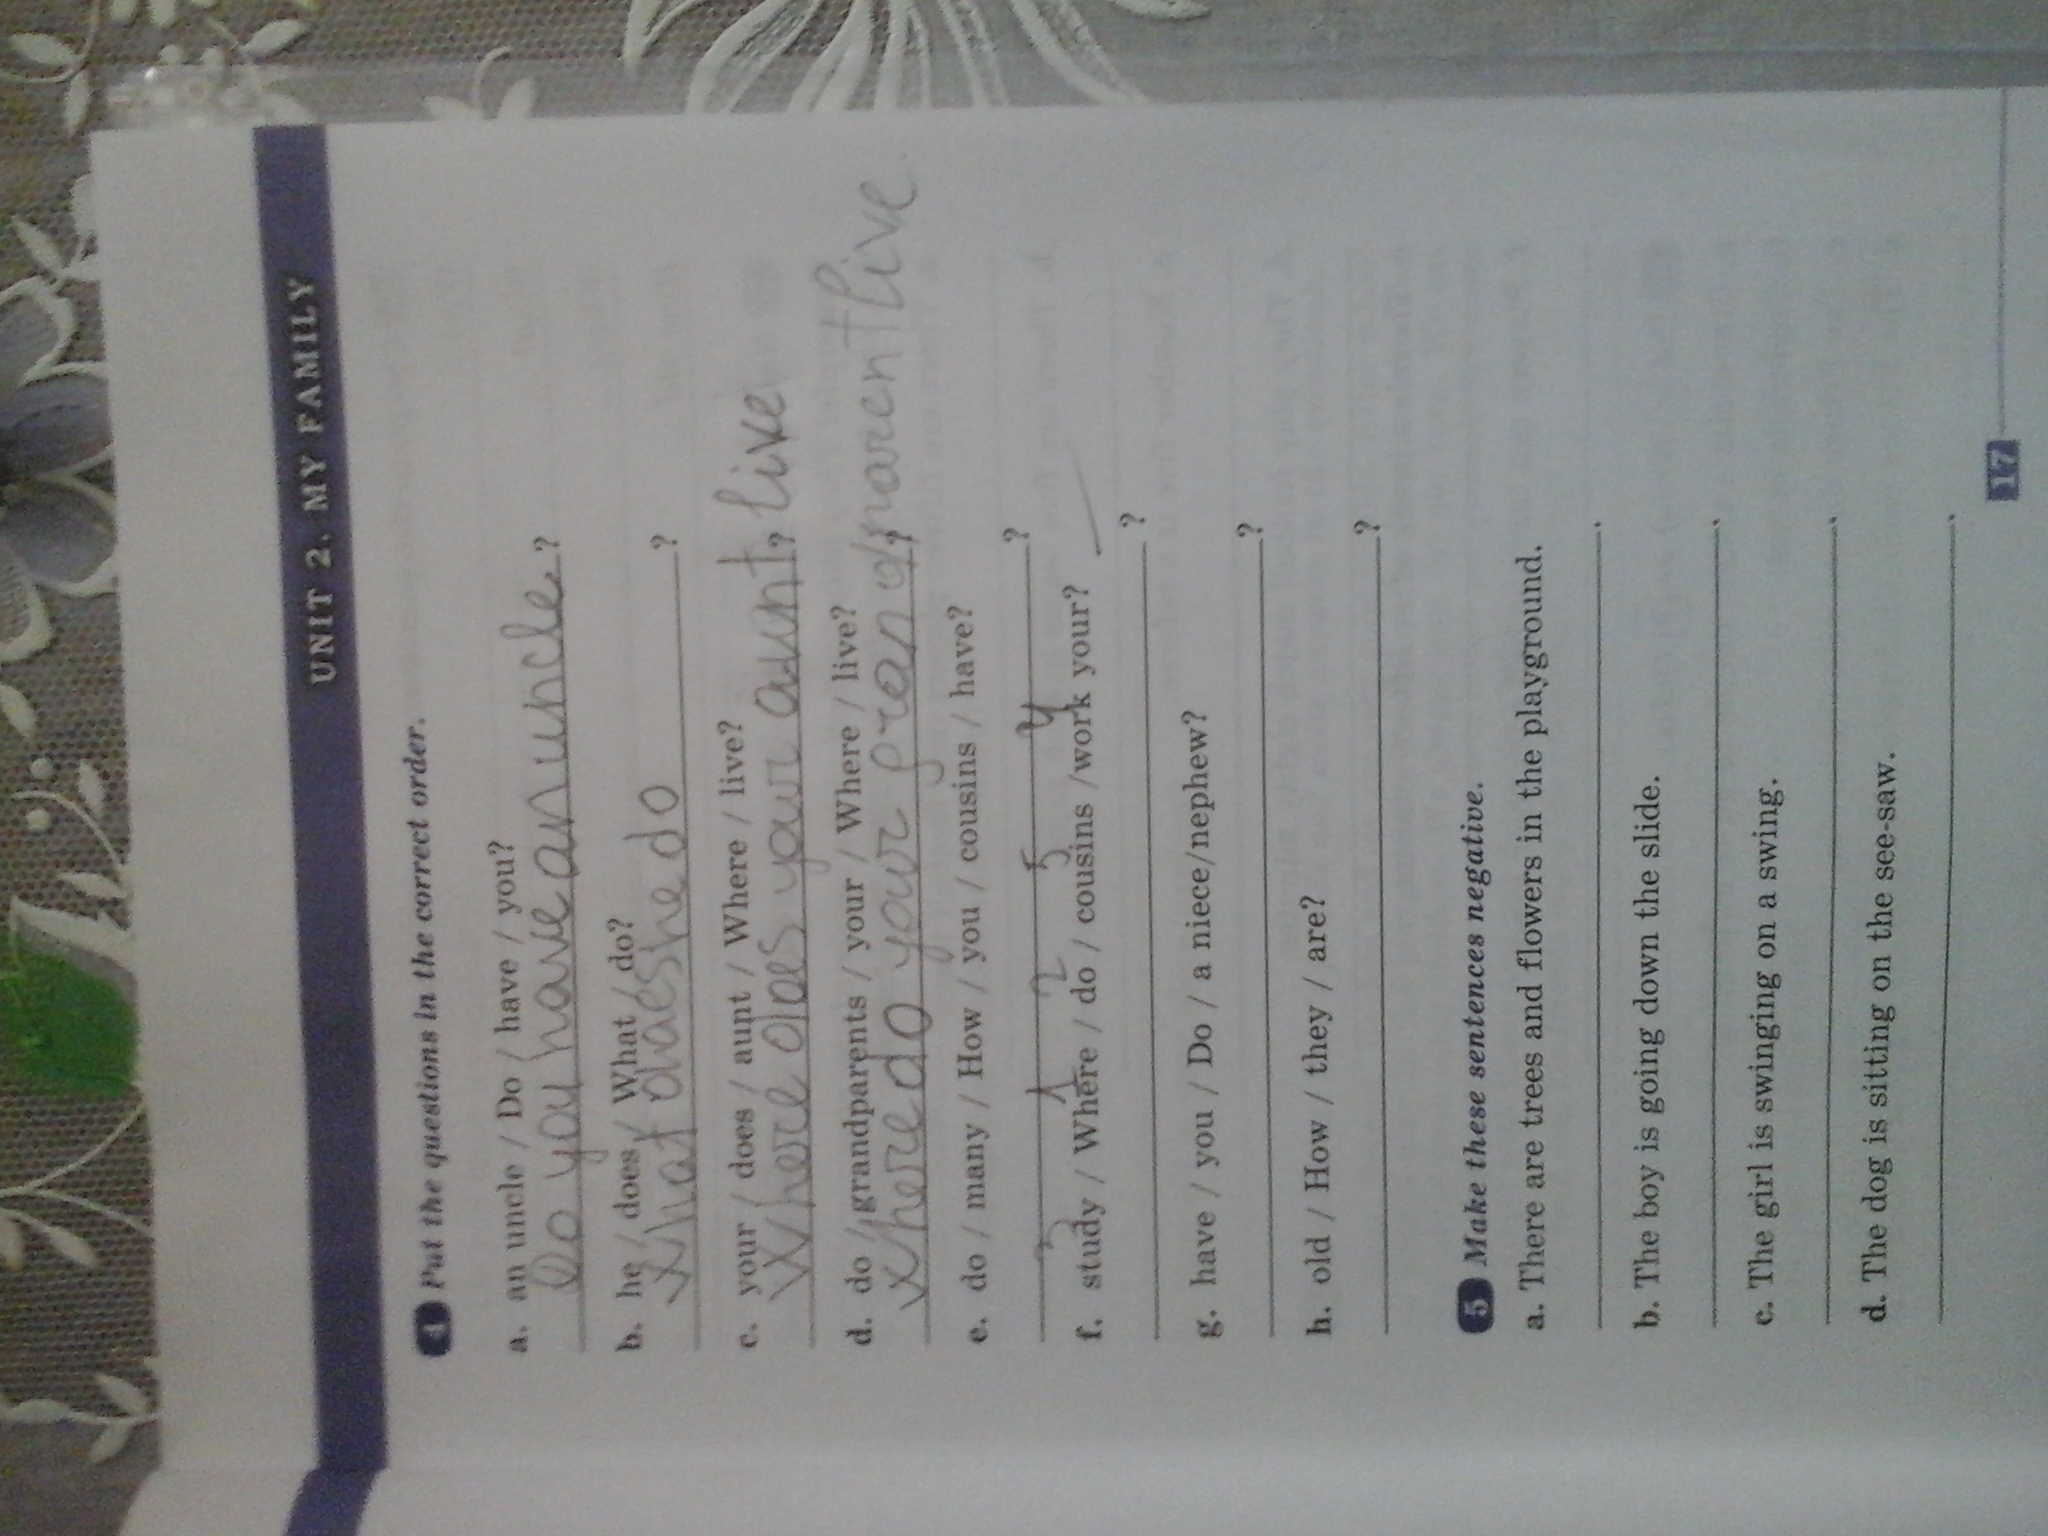 UNIT 2. MY FAMILY
4 Put the questions in the correct order.
a. an uncle / Do / have / you?
Do you have an uncle. ?
b. he / does / What / do?
What does he do ?
c. your / does / aunt / Where / live?
Where does your aunt ? live
d. do / grandparents / your / Where / live?
Where do your gran d ? parent live.
e. do / many / How / you / cousins / have?
?
3 1 2 5 4
f. study / Where / do / cousins /work your?
?
g. have / you / Do / a niece/nephew?
?
h. old / How / they / are?
?
5 Make these sentences negative.
a. There are trees and flowers in the playground.
.
b. The boy is going down the slide.
.
c. The girl is swinging on a swing.
.
d. The dog is sitting on the see-saw.
.
17